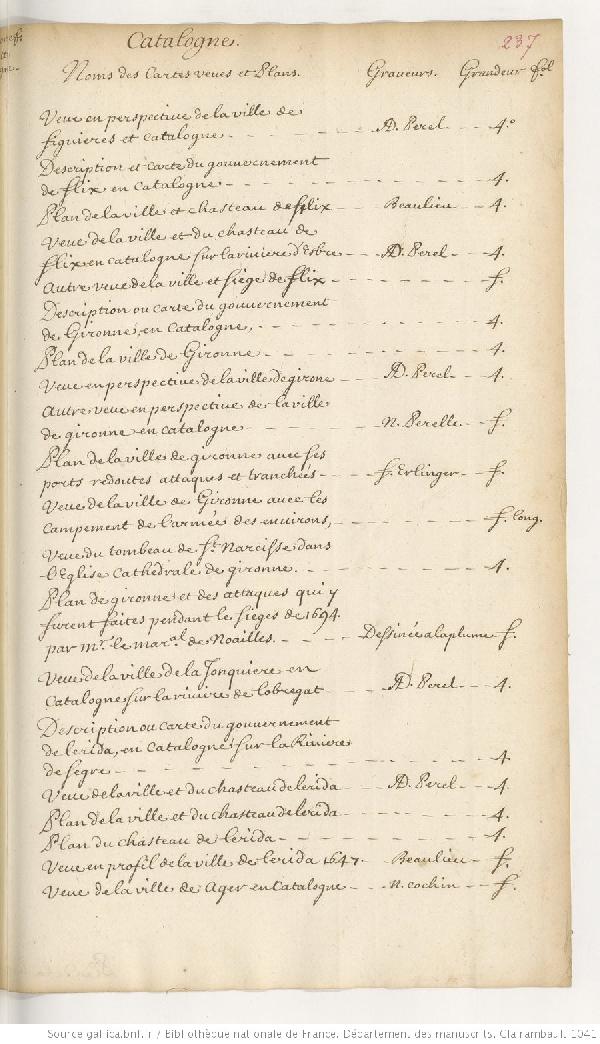 Catalogne.
237
Noms des Cartes veues et Plans. Graueurs. Grandeur fol
Veue en perspective de la ville de
figuieres et catalogne - - - - AD. Perel - - 4.°
Description et carte du gouuernement
de flix en Catalogne - - - - 4.
Plan de la ville et chasteau de flix - - Beaulieu - - 4.
Veue de la ville et du chasteau de
flix en catalogne sur la riuiere d'Esbre - - AD. Perel - - 4.
Autre veue de la ville et siege de flix - - - - f.
Description ou carte du gouuernement
de Gironne, en Catalogne, - - - - 4.
Plan de la ville de Gironne - - - - 4.
Veue en perspective de la ville de girone - - AD. Perel - - 4.
Autre veue en perspective de la ville
de gironne en catalogne - - - - N. Perelle - - f.
Plan de la ville de gironne auec ses
ports redoutes attaques et tranchées - - f. Erlinger - - f.
Veue de la ville de Gironne auec les
Campement de l'armée des enuirons, - - - - f. long.
Veue du tombeau de St. Narcisse dans
l'Eglise Cathedrale de gironne. - - - - 4.
Plan de gironne et des attaques qui y
furent faites pendant le sieges de 1694.
par mr. le maral. de Noailles. - - - - Dessinée a la plume f.
Veue de la ville de la Jonquiere en
Catalogne sur la riuiere de lobregat - - AD. Perel - - 4.
Description ou carte du gouuernement
de lerida, en Catalogne sur la Riuiere
de segre - - - - 4.
Veue de la ville et du chasteau de lerida - - AD. Perel - - 4.
Plan de la ville et du chasteau de lerida - - - - 4.
Plan du chasteau de lerida - - - - 4.
Veue en profil de la ville de lerida 1647. - - Beaulieu - - f.
Veue de la ville de Ager en Catalogne - - N. cochin - - f.
Source gallica.bnf.fr / Bibliothèque nationale de France. Département des manuscrits. Clairambault 1041